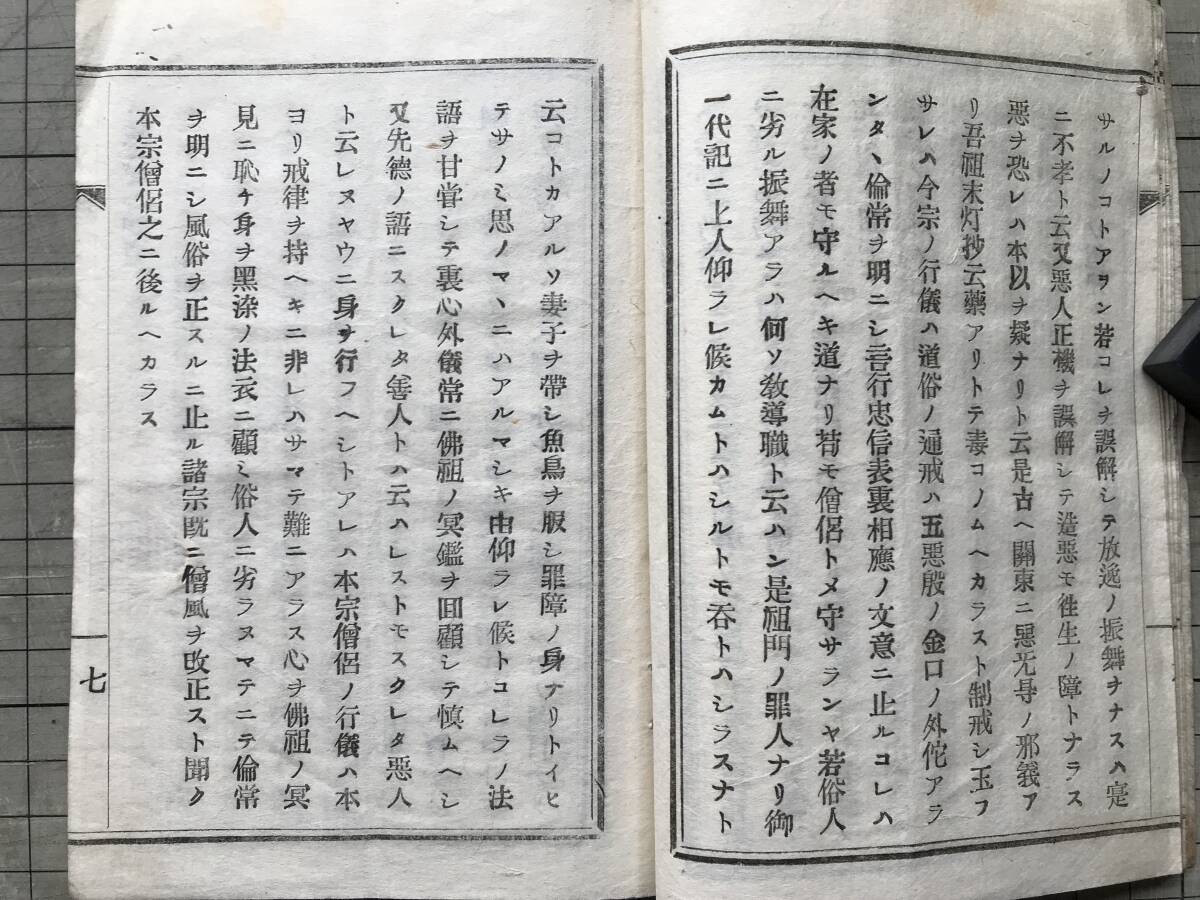 サルノコトアヲン若コレヲ誤解シテ放逸ノ振舞ヲナスハ寔
ニ不孝ト云又悪人正機ヲ誤解シテ造悪モ徃生ノ障トナラス
悪ヲ恐レハ本以ヲ疑ナリト云是古ヘ關東ニ悪旡㝵ノ邪義ア
リ吾祖末灯抄云藥アリトテ毒コノムヘカラスト制戒シ玉フ
サレハ今宗ノ行儀ハ道俗ノ通戒ハ五惡殷ノ金口ノ外佗アラ
ンタヽ倫常ヲ明ニシ言行忠信表裏相應ノ文意ニ止ルコレハ
在家ノ者モ守ルヘキ道ナリ苟モ僧侶トメ守サランヤ若俗人
ニ劣ル振舞アラハ何ソ敎導職ト云ハン是祖門ノ罪人ナリ御
一代記ニ上人仰ラレ候カムトハシルトモ呑トハシラスナト
云コトカアルソ妻子ヲ帶シ魚鳥ヲ服シ罪障ノ身ナリトイヒ
テサノミ思ノマヽニハアルマシキ由仰ラレ候トコレラノ法
語ヲ甘甞シテ裏心外儀常ニ佛祖ノ冥鑑ヲ囬顧シテ愼ムヘシ
又先德ノ語ニスクレタ善人トハ云ハレストモスクレタ悪人
ト云レヌヤウニ身ヲ行フヘシトアレハ本宗僧侶ノ行儀ハ本
ヨリ戒律ヲ持ヘキニ非レハサマテ難ニアラス心ヲ佛祖ノ冥
見ニ恥チ身ヲ黒染ノ法衣ニ顧ミ俗人ニ劣ラヌマテニテ倫常
ヲ明ニシ風俗ヲ正スルニ止ル諸宗既ニ僧風ヲ改正スト聞ク
本宗僧侶之ニ後ルヘカラス
七